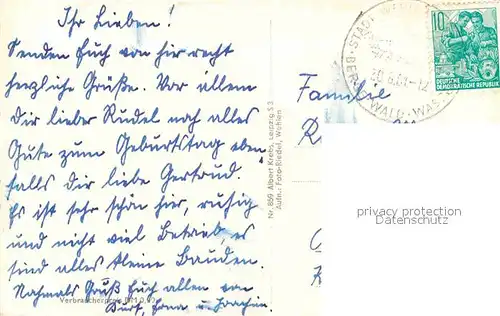 Ihr Lieben!
Senden Euch von hier recht
herzliche Grüße. Vor allem
Dir lieber Rudel noch alles
Gute zum Geburtstag eben
falls Dir liebe Gertrud.
Es ist sehr schön hier, ruhig
und nicht viel Betrieb, es
sind alles kleine Bauden.
Nochmals Gruß Euch allen von
Erna u. Joachim.
Verbraucherpreis
Nr. 869 Albert Krebs, Leipzig S 3
Aufn. Foto-Riedel, Wehlen
STADT
WALD
10
DEUTSCHE
DEMOKRATISCHE REPUBLIK
Familie
privacy protection
www.ansichtskartenversand.com